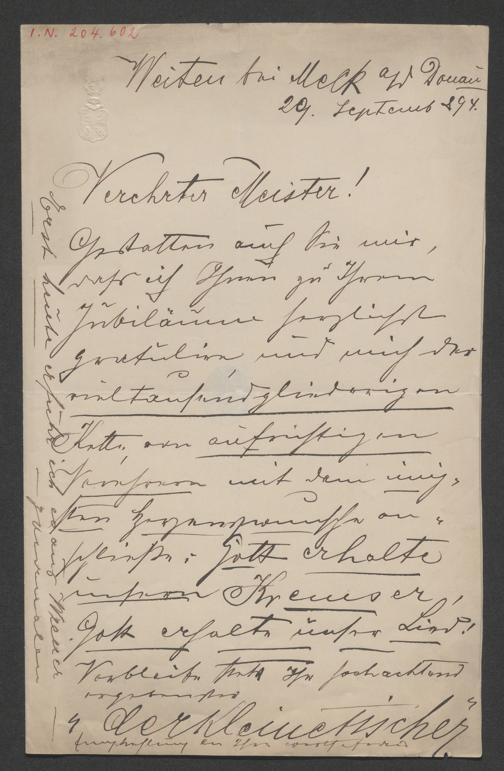 I.N. 204.602
Weiten bei Melk a/d Donau
29. Septemb 894.
Verehrter Meister!
Gestatten auch Sie mir,
daß ich Ihnen zu Ihrem
Jubiläum herzlichst
gratulire und mich der
vieltausendgliedrigen
Kette von aufrichtigen
Verehrern mit dem innig-
sten Herzenswunsche an-
schließe: Gott erhalte
unsern Kremser,
Gott erhalte unser Lied!
Verbleibe stets Ihr hochachtend
ergebenster
Empfehlung an Ihre
Erst heute erfuhr ich es aus Wiener